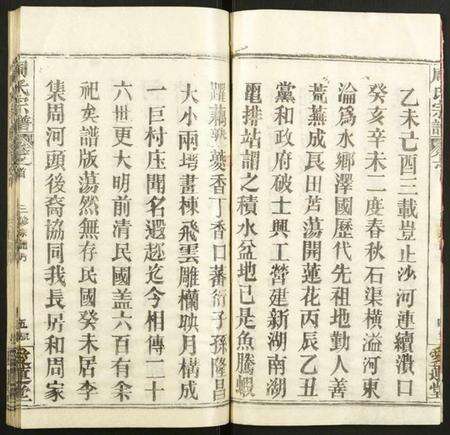 乙未己酉三載豈止沙河連續潰口
癸亥辛未二度春秋石渠橫溢河東
淪爲水鄉澤國歷代先祖地動人善
荒蕪成良田蘆蕩開蓮花丙辰乙丑
黨和政府破土興工營建新湖南湖
電排站謂之積水盆地已是魚騰蝦
躍藕菱香丁香口蕃衍子孫隆昌
大小兩塆畫棟飛雲雕欄映月構成
一巨村庄聞名遐邇迄今相傳二十
六世更大明前清民國蓋六百有余
祀矣譜版蕩然無存民國癸未居李
集周河頭後裔協同我長房和周家
周氏宗譜
卷之首
愛蓮堂
周氏宗譜
卷之首
愛蓮堂